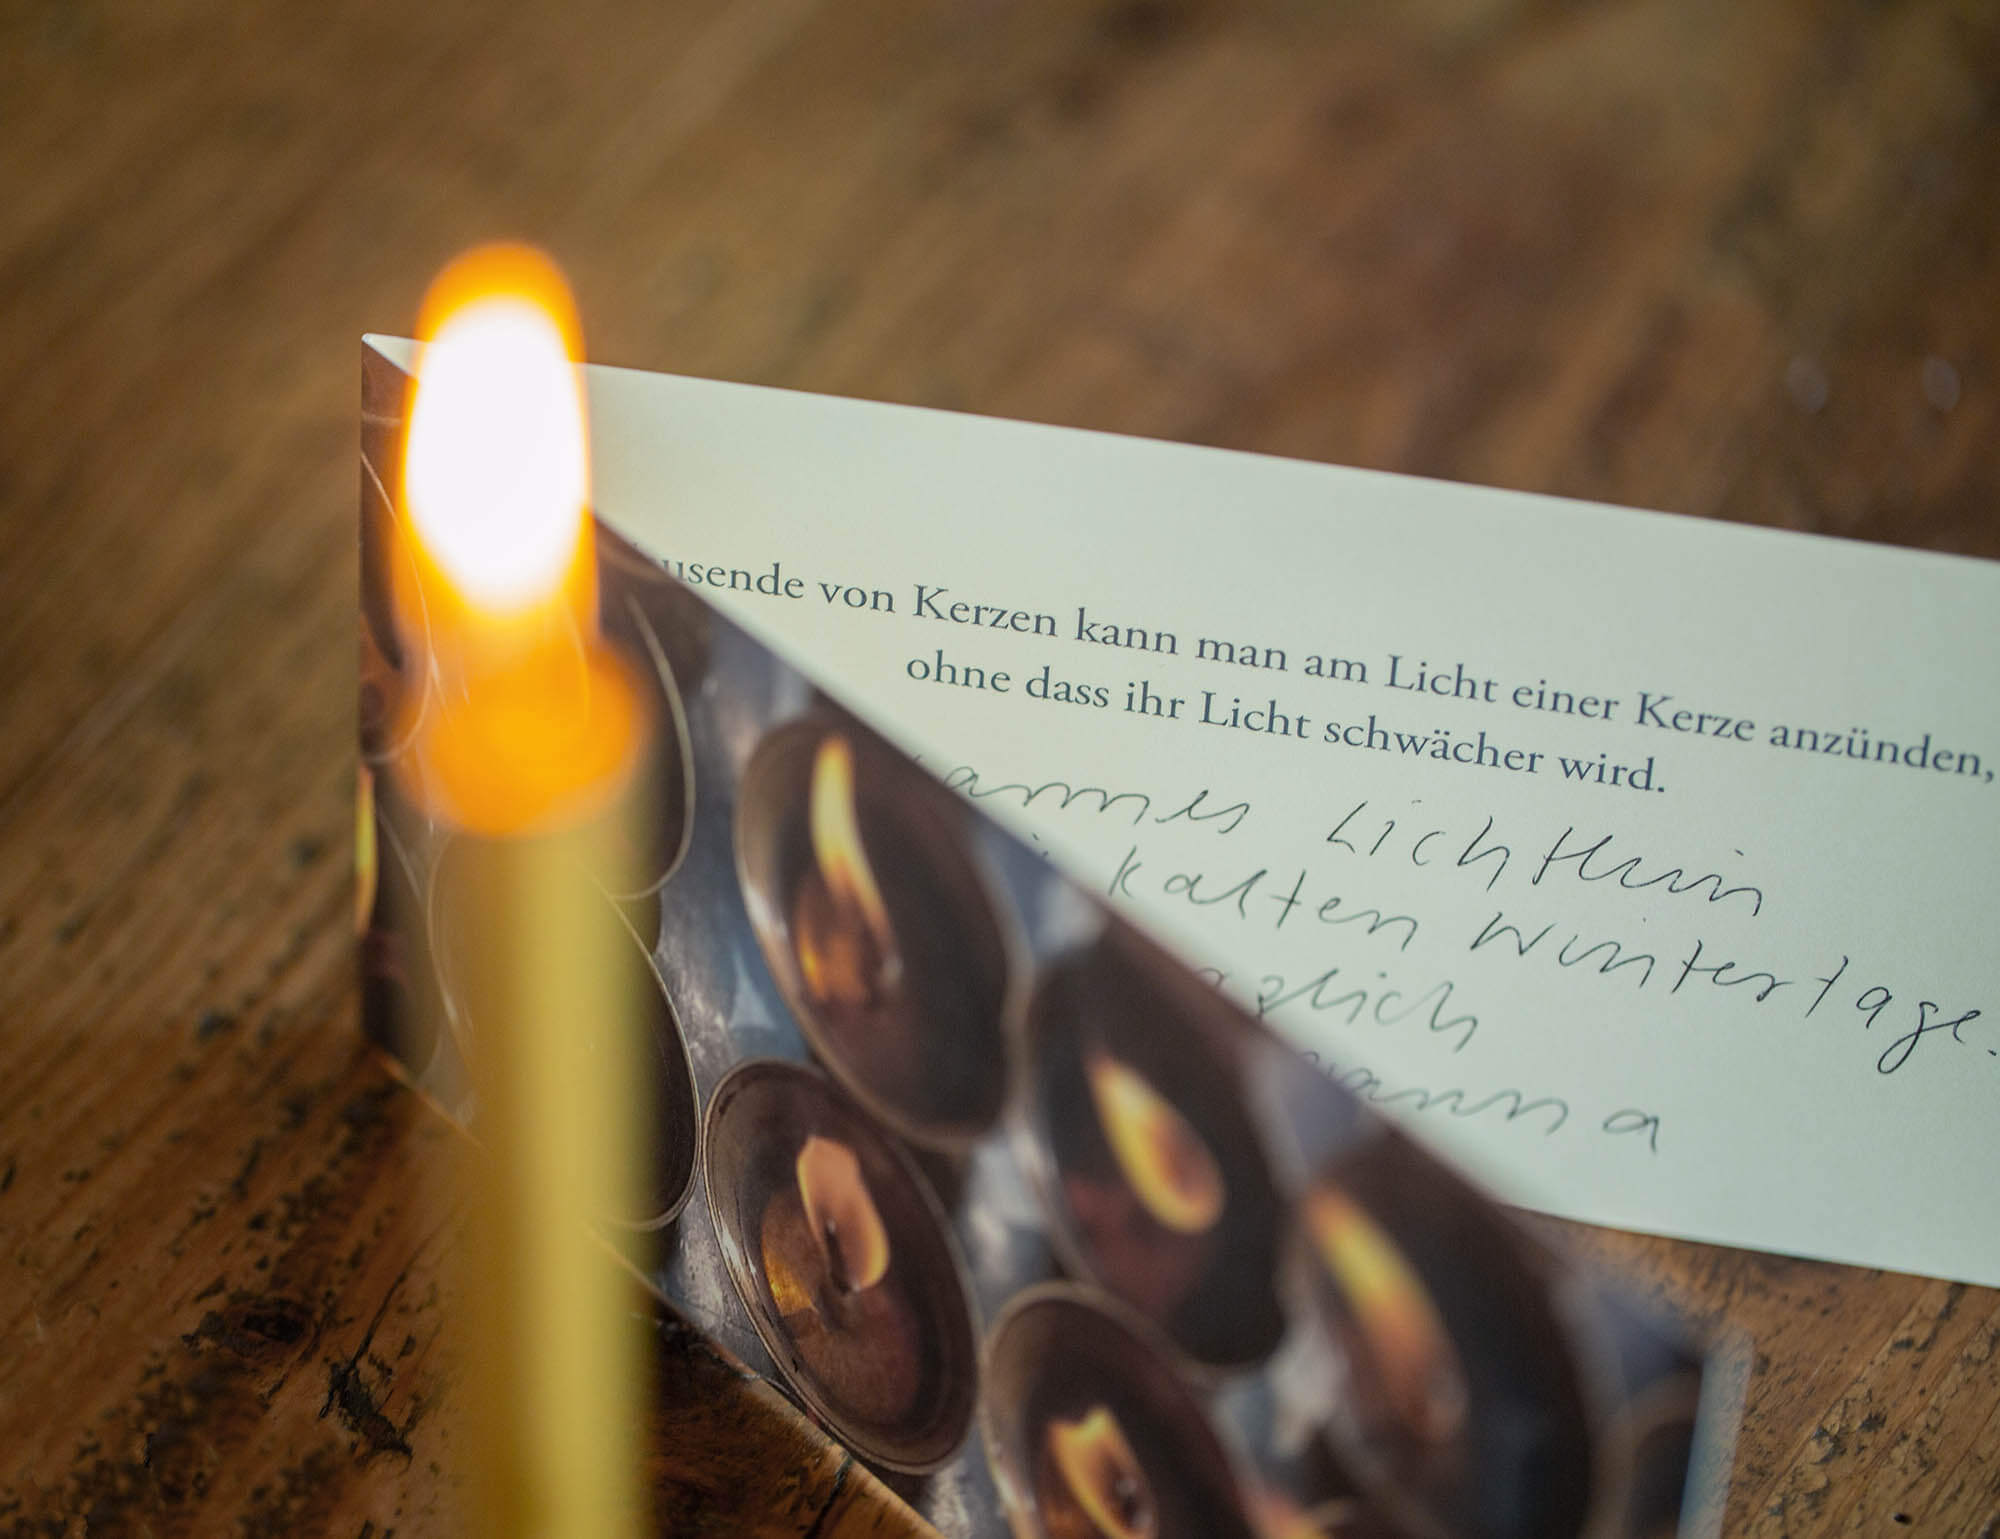 usende von Kerzen kann man am Licht einer Kerze anzünden,
ohne dass ihr Licht schwächer wird.
armes Lichtlein
kalten Wintertage.
zlich
anna